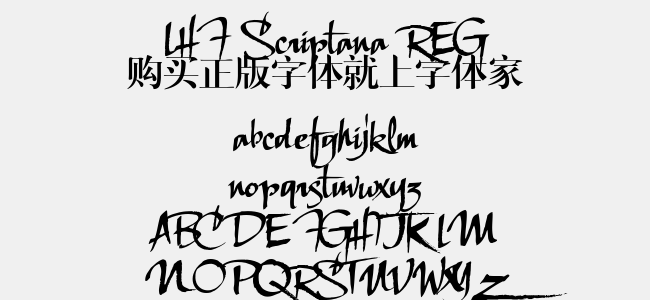 LHF Scriptana REG
购买正版字体就上字体家
abcdefghijklm
nopqrstuvwxyz
ABCDEFGHIJKLM
NOPQRSTUVWXYZ